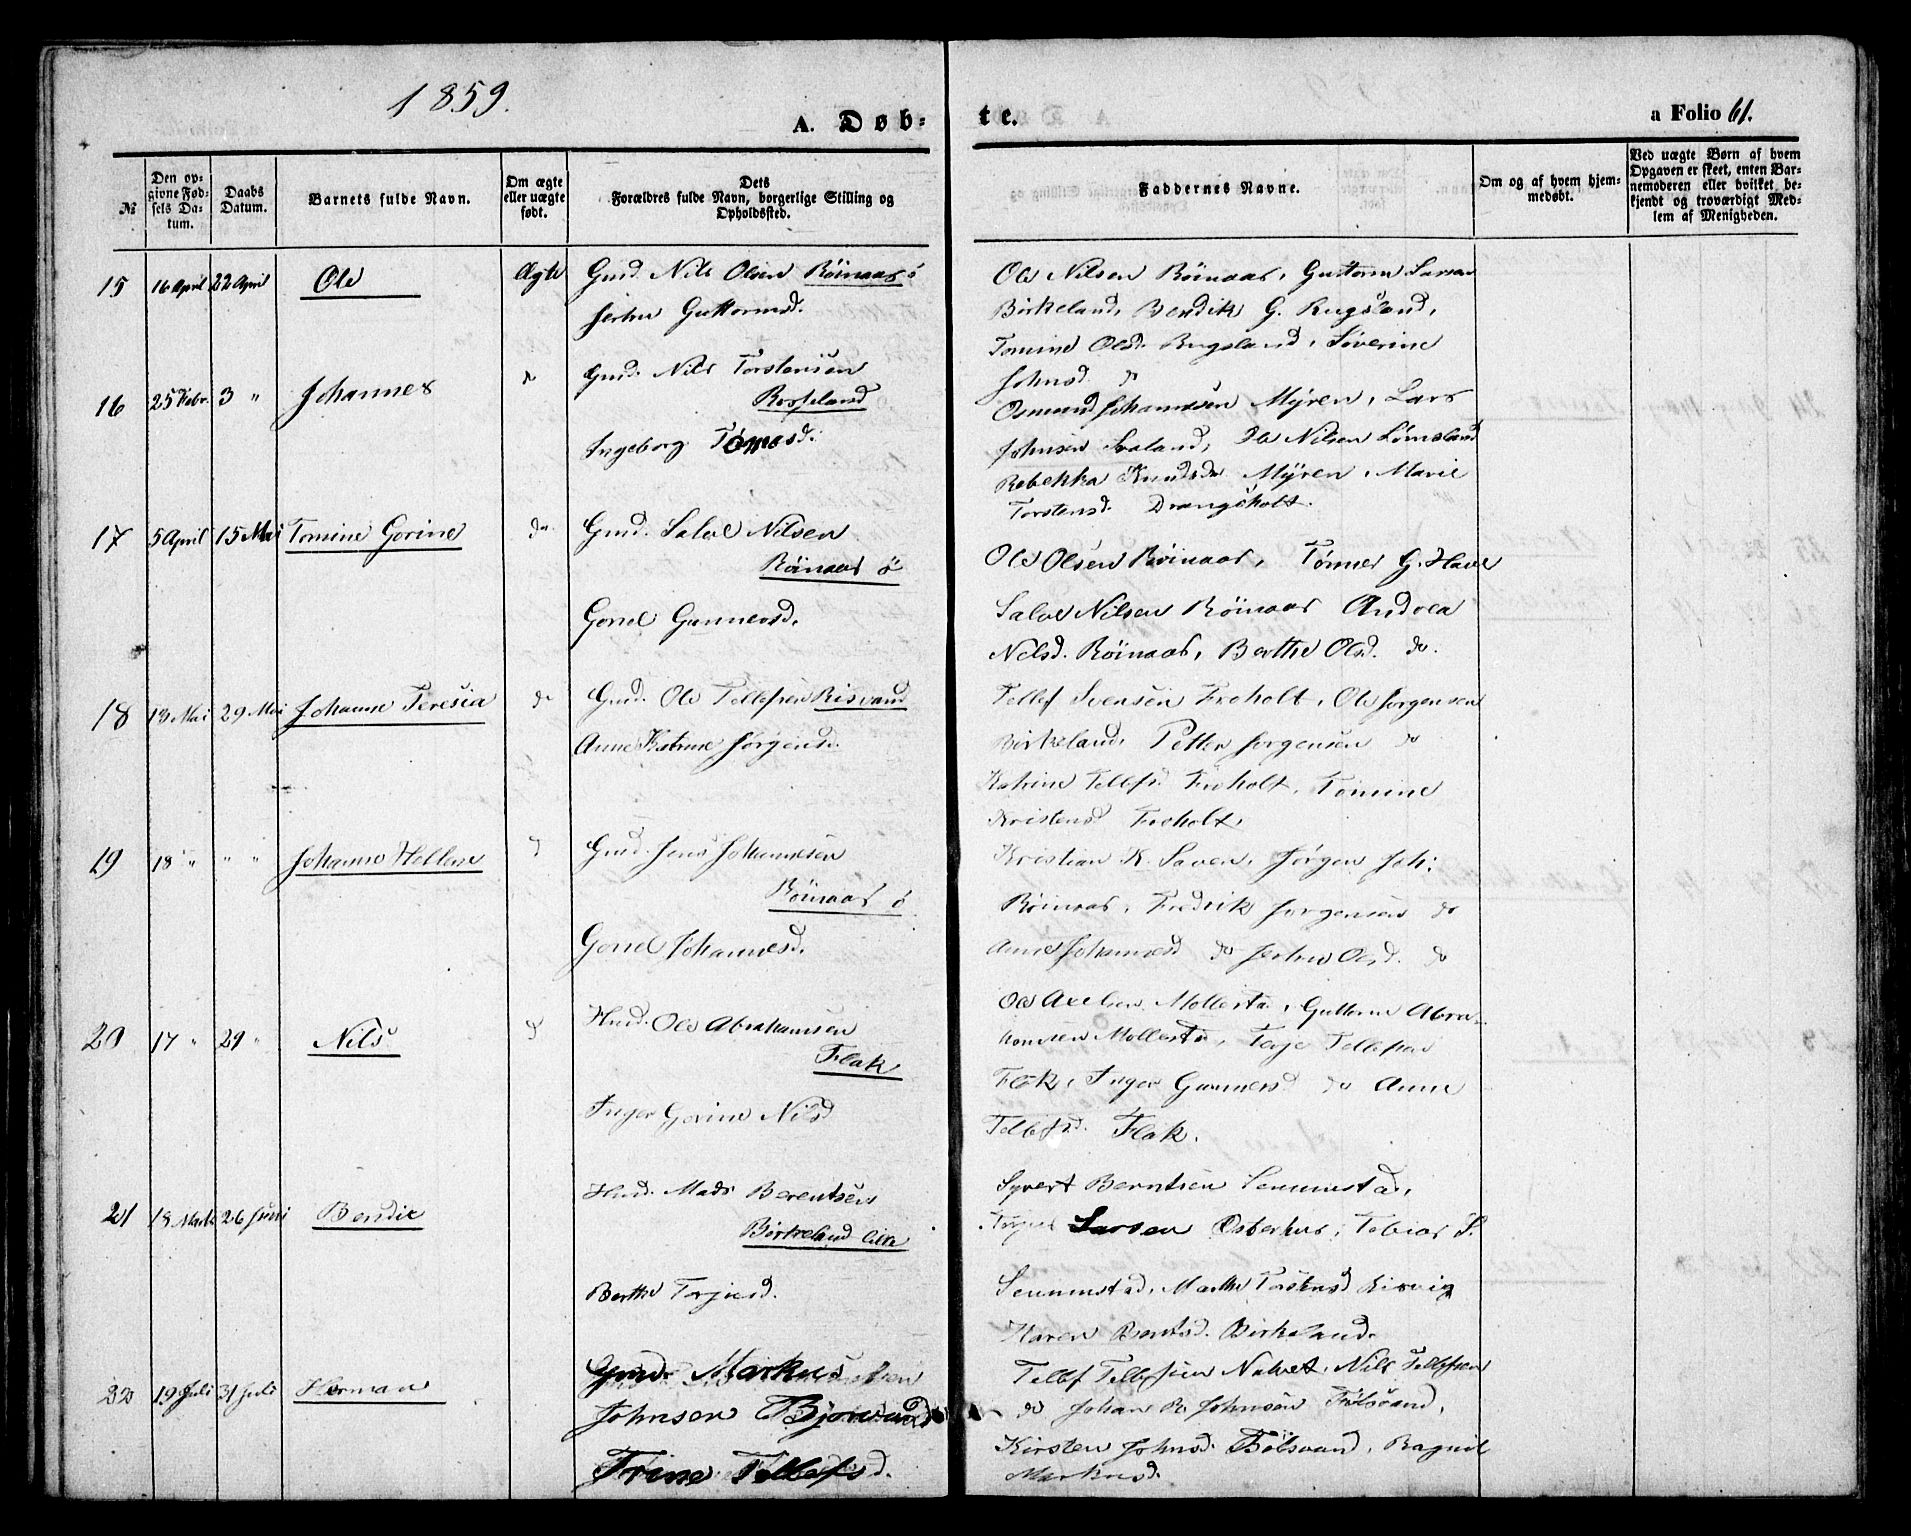 1859.
A. Døb-
te.
a Folio 61.
№
Den op-
givne Fød-
sels Da-
tum.
Daabs
Datum.
Barnets fulde Navn.
Om ægte
eller uægte
født.
Dets
Forældres fulde Navn, borgerlige Stilling og
Opholdssted.
Faddernes Navne.
Om og af hvem hjem-
medøbt.
Ved uægte Børn af hvem
Opgaven er skeet, enten Bar-
nemoderen eller hvilket be-
kjendt og troværdigt Med-
lem af Menigheden.
15 16 April 22 April Ole Ægte Gmd. Nils Olsen Röinaas ö
Guttormsd.
Ole Nilsen Röinaas, Guttorm Larsen
Birkeland, Bendik G. Rugsland,
Tomine Olsd. Rugsland, Severine
Johnsd. do
16 25 Febr. 3 " Johannes do Gmd. Nils Torstensen
Rosseland
Ingeborg Tømesd.
Osmund Johannesen Mÿren, Lars
Johnsen Svaland, Ole Nilsen Lømsland
Rebekka Knudsd. Mÿren, Marie
Torstensd. Drangsholt.
17 5 April 15 Mai Tomine Gorine do. Gmd. Salve Nilsen
Röinaas ö
Gonel Gunnersd.
Ole Olsen Röinaas, Tønnes G. Have
Salve Nilsen Röinaas Andrea
Nelsd. Röinaas, Berthe Olsd. do.
18 13 Mai 29 Mai Johanne Teresia do Gmd. Ole Tellefsen Risvand
Anne Katrine Jørgensd.
Tellef Svensen Froholt, Ole Jorgensen
Birkeland, Petter Jorgensen do
Katrine Tellefsd. Froholt, Tomine
Kristensd Froholt.
19 18 " " " Johanne Hellene d Gmd. Jens Johannesen
Röinaas ö
Gonel Johannesd.
Kristian K. Saven, Jörgen Joh:
Röinaas, Fredrik Jorgensen do
Anne Johannesd do Olsd. do
20 17 " 29 " Nils d Husd. Ole Abrahamsen
Flak
Inger Gorine Nilsd
Ole Axelsen Mollestad, Guttorm Abra-
hamsen Mollestad, Terje Tellefsen
Flak, Inger Gunnersd do Anne
Tellefsd. Flak.
21 18 Marts 26 Juni Bendix Husd. Mads Berentsen
Birkeland lille
Berthe Torjusd.
Syvert Berntsen Senumstad,
Larsen Osterhus, Tobias S.
Senumstad, Marthe Torstensd Risvig
Karen Berntsd. Birkeland.
22 19 Juli 31 Juli Herman Gmd. Markus
Johnsen
Trine Tellefsd.
Tellef Tellefsen Nalvet, Nils Tellefsen
do Johan R. Johnsen Fölsvand,
Kirsten Johnsd. Fölsvand, Ragnil
Markusd.